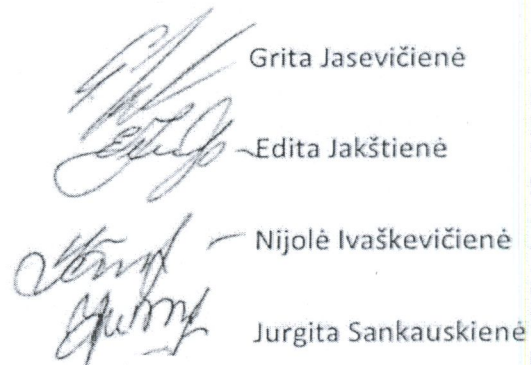 Grita Jasevičienė
Edita Jakštienė
Nijolė Ivaškevičienė
Jurgita Sankauskienė